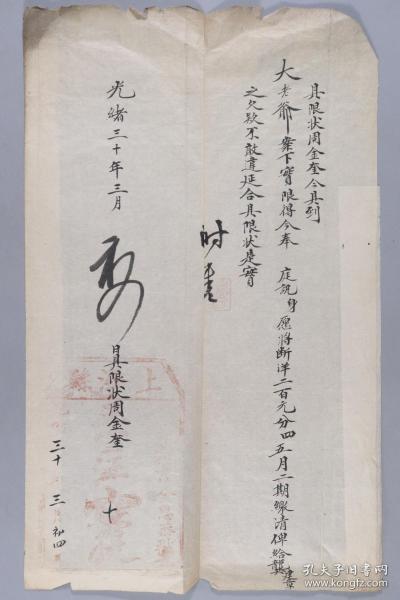 具限狀周金奎今具到
大老爺案下實限得今奉 庭訊身愿將斷洋二百元分四五月二期繳清俾給龔
之欠款不敢違延合具限狀是實
光緒三十年三月
日具限狀周金奎
十
三十 三 初四
孔夫子旧书网
www.kongfz.com